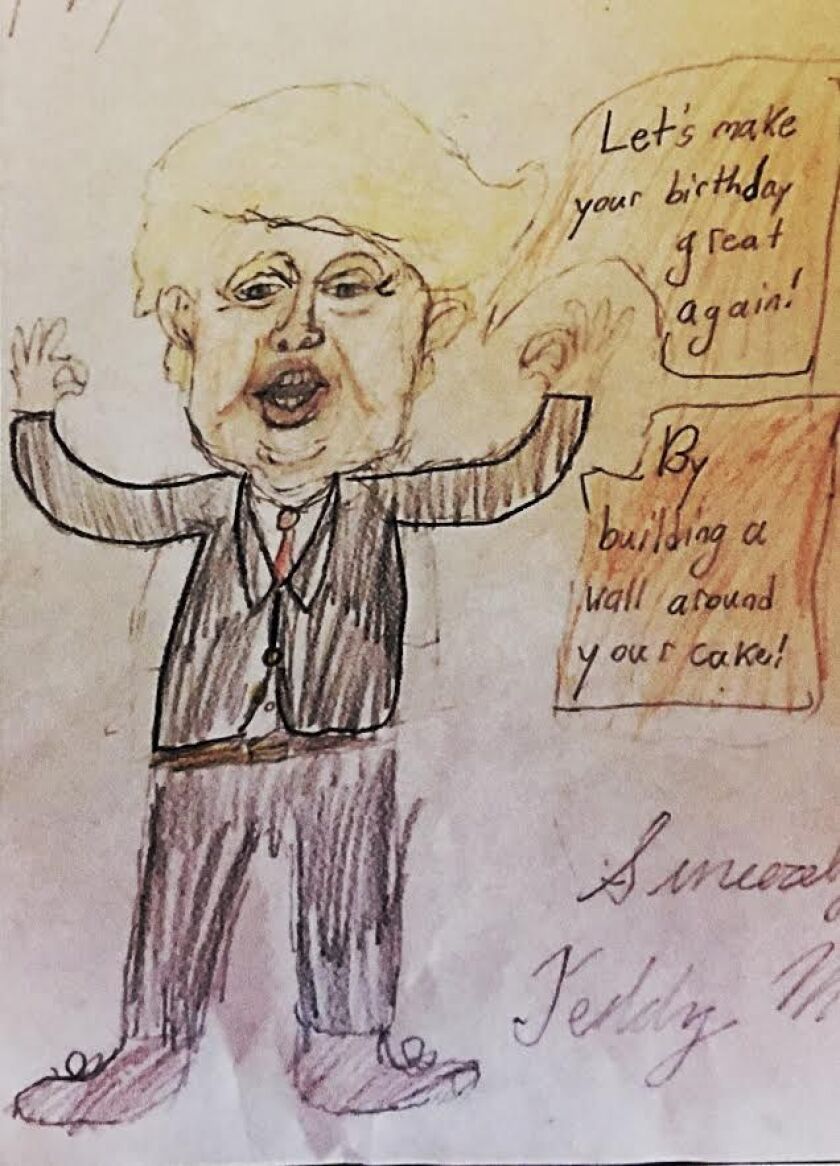 Let's make
your birthday
great
again!
By
building a
wall around
your cake!
Sincerely
Teddy M